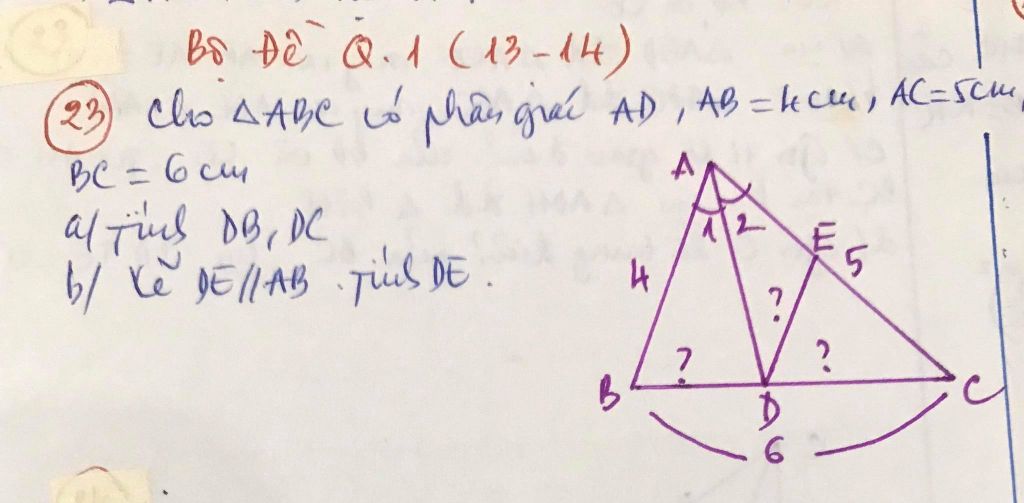 Bộ Đề Q.1 (13-14)
23 Cho △ABC có phân giác AD, AB = 4cm, AC = 5cm
BC = 6cm
a/ Tính DB, DC
b/ Kẽ DE // AB. Tính DE.
A
1 2
E
4
5
?
? ?
B D C
6